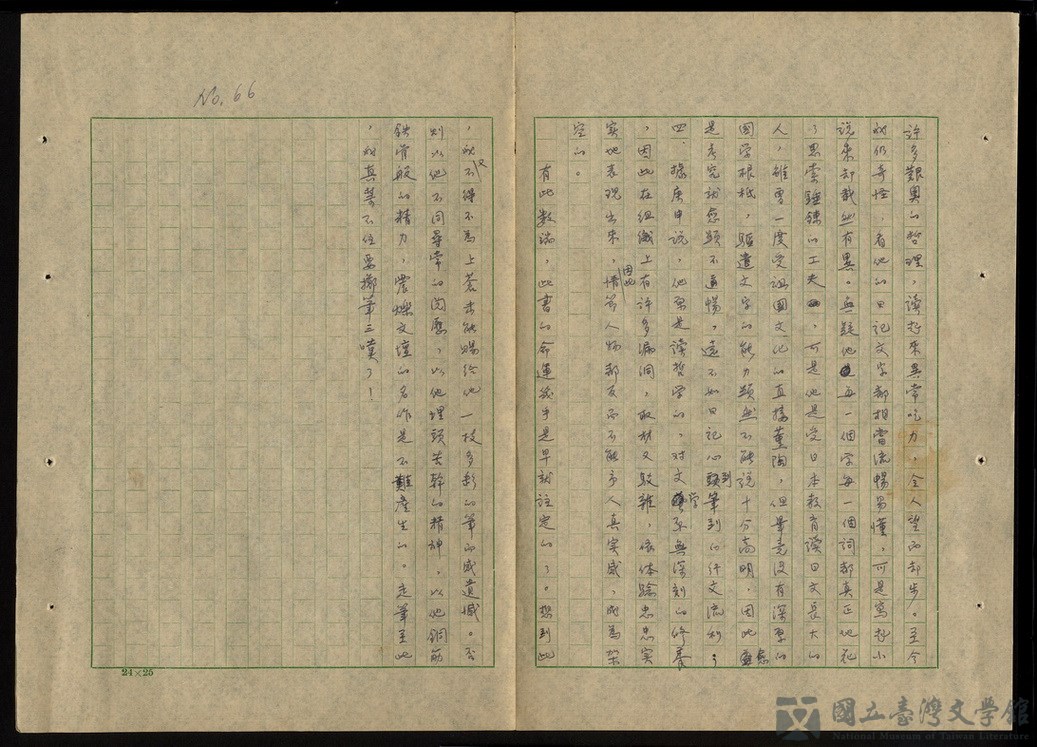 許多艱奧的哲理，讀起來異常吃力，令人望而却步。至今
我仍奇怪，看他的日記文字都相當流暢易懂，可是寫起小
說來却截然有異。無疑他每一個字每一個詞都真正地花
了思索錘鍊的工夫，可是他是受日本教育讀日文長大的
人，雖曾一度受祖國文化的直接薰陶，但畢竟沒有深厚的
國學根柢，驅遣文字的能力顯然不能說十分高明，因此愈
是考究就愈顯不通暢，遠不如日記心到筆到的行文流利；
四、據庚申說，他原是讀哲學的，對文學原無深刻的修養
，因此在組織上有許多漏洞，取材又駁雜，依體驗忠忠實
實地表現出來，因此情節人物都反而不能予人真實感，成為架
空的。
有此數端，此書的命運幾乎是早就註定的了。想到此
，我又不得不為上蒼未能賜給他一枝多彩的筆而感遺憾。否
則以他不同尋常的閱歷，以他埋頭苦幹的精神，以他銅筋
鉄骨般的精力，震爍文壇的名作是不難產生的。走筆至此
，我真禁不住要擲筆三嘆了！
No. 66
24×25
國立臺灣文學館
National Museum of Taiwan Literature